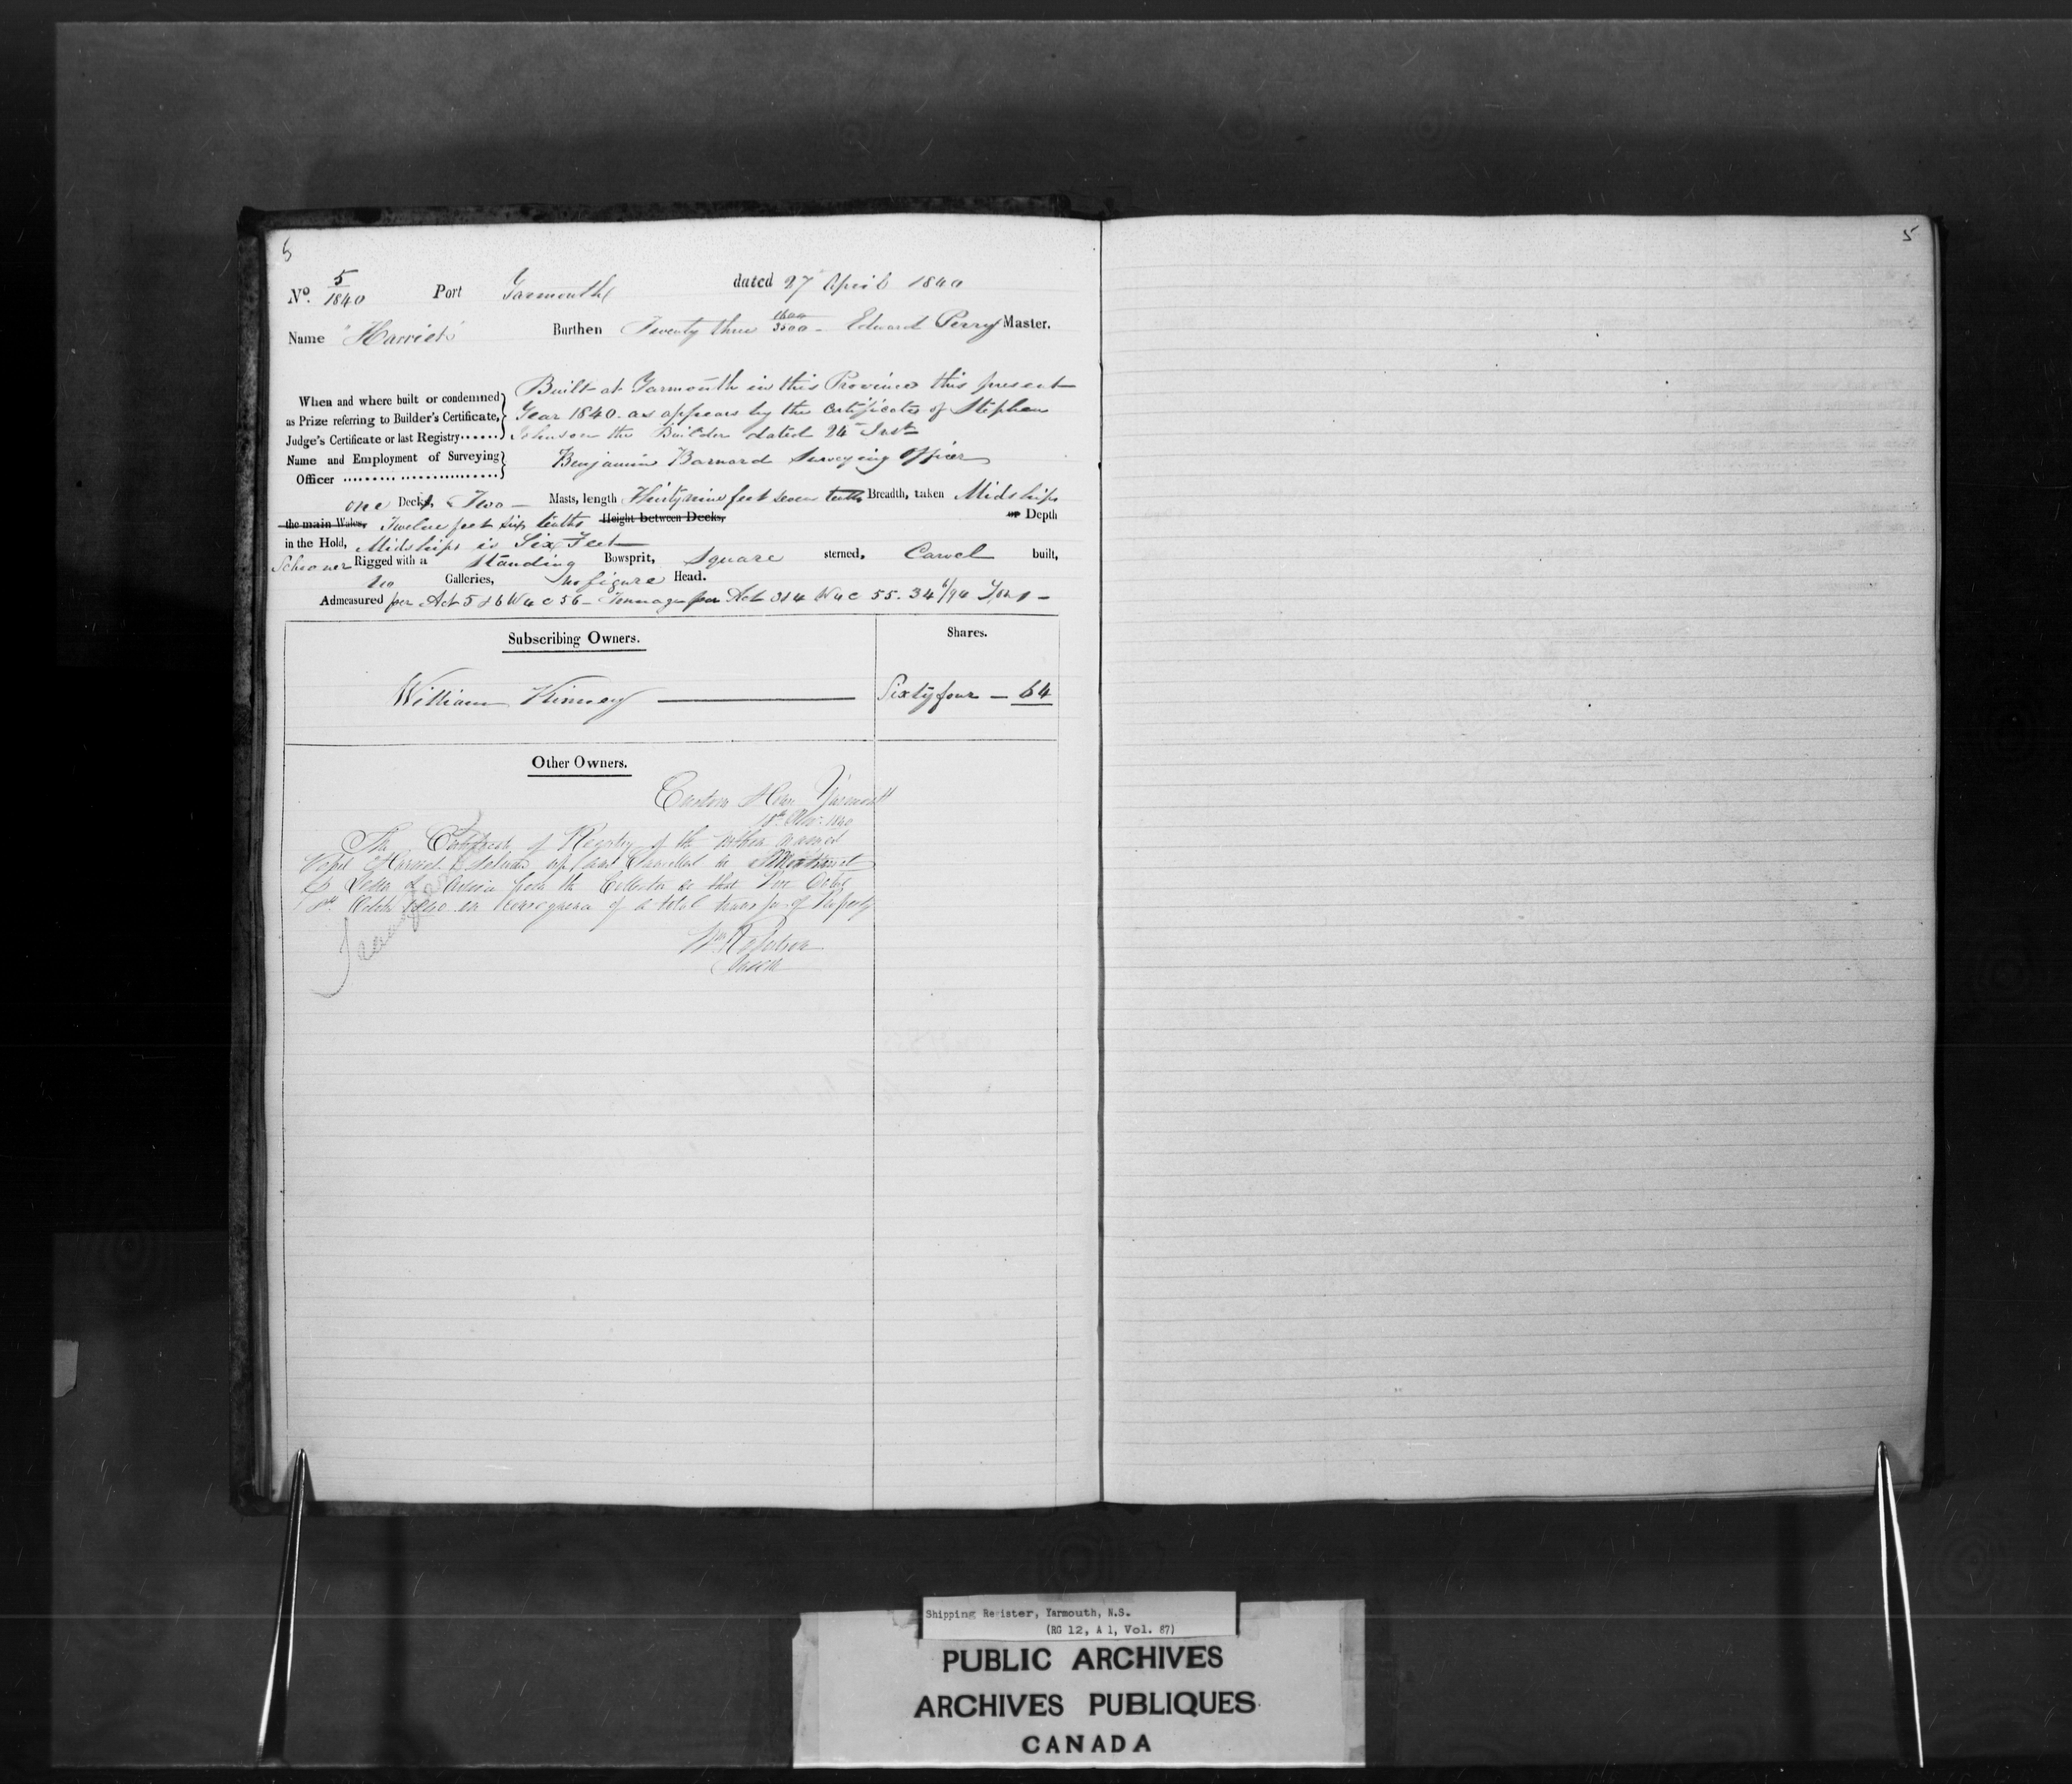 5
5
No. 5/1840 Port Yarmouth dated 27 April 1840
Name "Harriet" Burthen Twenty three 1600/3500 - Edward Perry Master.
When and where built or condemned as Prize referring to Builder's Certificate, Judge's Certificate or last Registry......
Built at Yarmouth in this Province this present
Year 1840. as appears by the Certificate of Stephen
Johnson the Builder dated 24 Inst
Name and Employment of Surveying Officer
Benjamin Barnard Surveying Officer
one Decks Two - Masts, length Thirty nine feet seven tenths Breadth, taken Midships
the main Wales, Twelve feet six tenths Height between Decks, or Depth
in the Hold, Midships is Six Feet
Schooner Rigged with a Standing Bowsprit, Square sterned, Carvel built,
no Galleries, no figure Head.
Admeasured per Act 5 & 6 W 4 c 56 - Tonnage per Act 3 & 4 W 4 C 55. 34 6/94 Tons -
Subscribing Owners. Shares.
William Kinney Sixty four - 64
Other Owners.
Custom House Yarmouth
18th Nov. 1840
The Certificate of Registry of the within named
Vessel Harriet delivered up and Cancelled
Letter of Advice from the Collector at that Port dated
Octr 1840 in consequence of a total transfer of Property
Wm Robertson
Shipping Register, Yarmouth, N.S.
(RG 12, A 1, Vol. 87)
PUBLIC ARCHIVES
ARCHIVES PUBLIQUES
CANADA